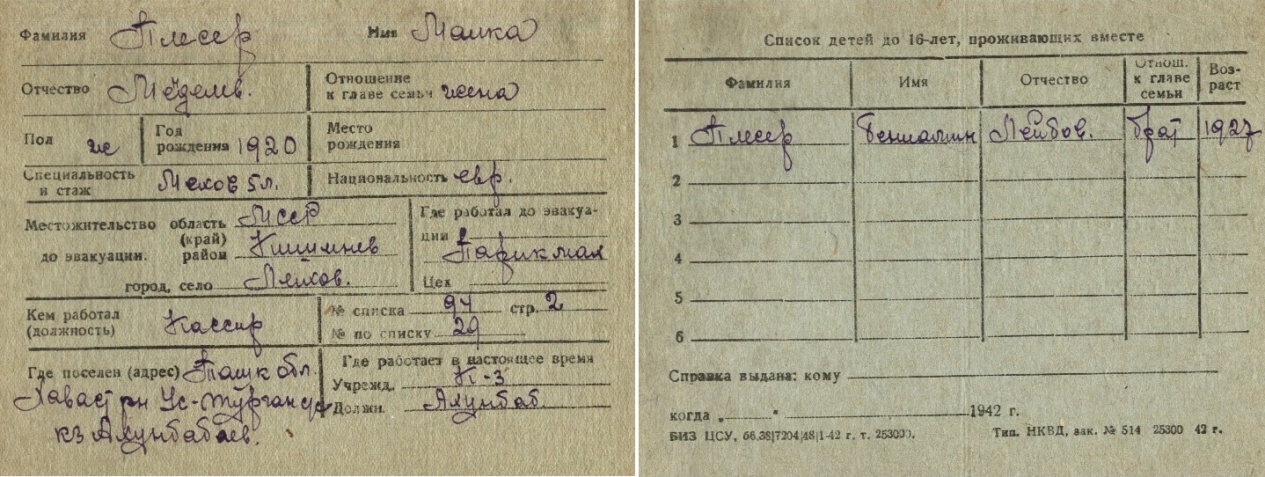 Фамилия Плесер Имя Малка
Отчество Мейделев. Отношение к главе семьи жена
Пол ж Год рождения 1920 Место рождения
Специальность и стаж 5 л. Национальность евр.
Местожительство до эвакуации: область (край) МССР
район Кишинев
город, село
Где работал до эвакуации Парикмах
Цех
Кем работал (должность) Кассир
№ списка 94 стр. 2
№ по списку 29
Где поселен (адрес) Ташк обл.
Хавастрн
кз Ахунбабаев.
Где работает в настоящее время
Учрежд. К-3
Должн. Ахунбаб.
Список детей до 16-лет, проживающих вместе
Фамилия Имя Отчество Отнош. к главе семьи Возраст
1 Плесер Бениамин Лейбов. брат 1927
2
3
4
5
6
Справка выдана: кому
когда „ “ 1942 г.
БИЗ ЦСУ, 66,38|7204|48|1-42 г. т. 253000. Тип. НКВД, зак. № 514 25300 42 г.